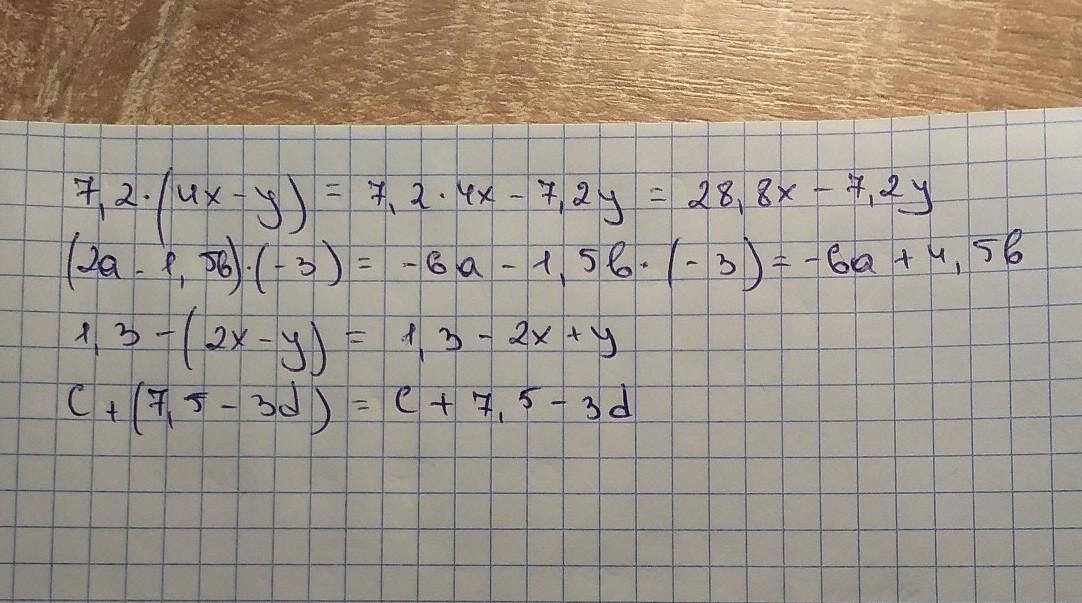 7,2·(4x-y) = 7,2·4x - 7,2y = 28,8x - 7,2y
(2a - 1,5b)·(-3) = -6a - 1,5b·(-3) = -6a + 4,5b
1,3 - (2x - y) = 1,3 - 2x + y
c + (7,5 - 3d) = c + 7,5 - 3d